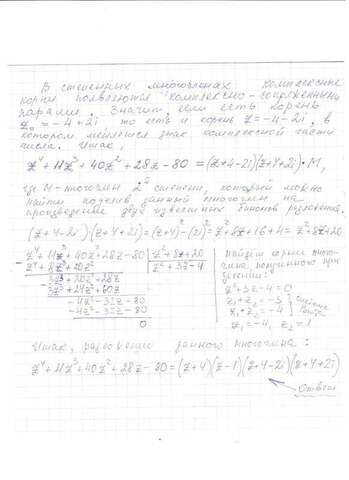 В степенных многочленах комплексные
корни появляются комплексно-сопряженными
парами. Значит, если есть корень
z₀ = -4+2i то есть и корень z = -4-2i, в
котором меняется знак комплексной части
числа. Итак,
z⁴ + 11z³ + 40z² + 28z - 80 = (z+4-2i)(z+4+2i)·M,
где M - многочлен 2ой степени, который можно
найти поделив данный многочлен на
произведение двух известных биномов разложения.
(z+4-2i)(z+4+2i) = (z+4)² - (2i)² = z² + 8z + 16 + 4 = z² + 8z + 20
z⁴ + 11z³ + 40z² + 28z - 80 | z² + 8z + 20
z⁴ + 8z³ + 20z² | z² + 3z - 4
3z³ + 20z² + 28z
3z³ + 24z² + 60z
-4z² - 32z - 80
-4z² - 32z - 80
0
Найдем корни много-
члена полученного при
делении:
z² + 3z - 4 = 0
z₁ + z₂ = -3
z₁ · z₂ = -4
система
Виета
z₁ = -4, z₂ = 1
Итак, разложение данного многочлена:
z⁴ + 11z³ + 40z² + 28z - 80 = (z+4)(z-1)(z+4-2i)(z+4+2i)
Ответ